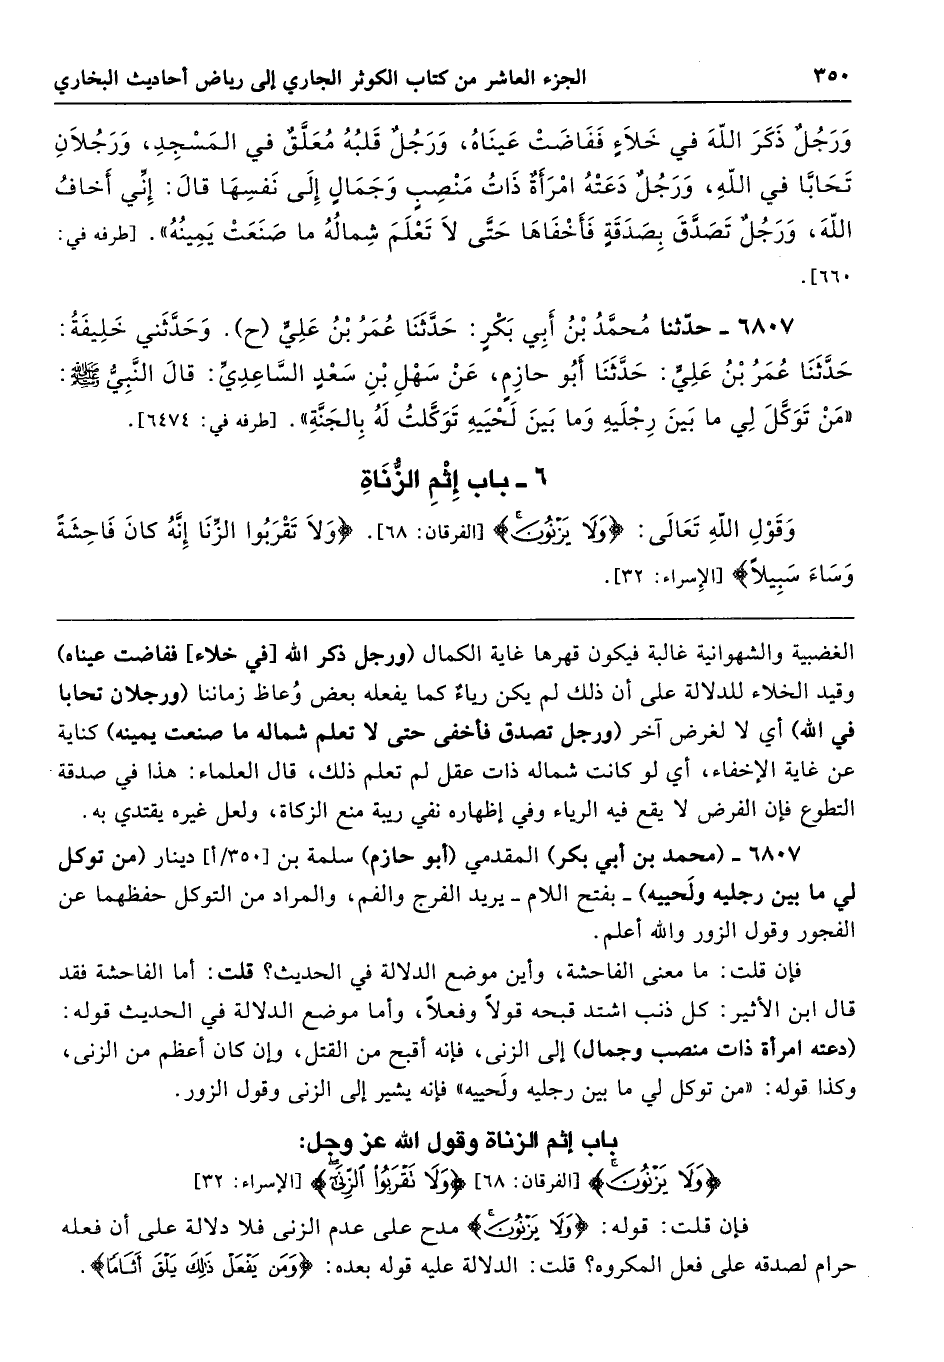 ٣٥٠ الجزء العاشر من كتاب الكوثر الجاري إلى رياض أحاديث البخاري
وَرَجُلٌ ذَكَرَ اللّهَ في خَلاَءٍ فَفَاضَتْ عَينَاهُ، وَرَجُلٌ قَلبُهُ مُعَلَّقٌ في المَسْجِدِ، وَرَجُلاَنِ
تَحَابَّا في اللّهِ، وَرَجُلٌ دَعَتْهُ امْرَأَةٌ ذَاتُ مَنْصِبٍ وَجَمَالٍ إِلَى نَفسِهَا قالَ: إِنِّي أَخافُ
اللّهَ، وَرَجُلٌ تَصَدَّقَ بِصَدَقَةٍ فَأَخْفَاهَا حَتَّى لاَ تَعْلَمَ شِمالُهُ ما صَنَعَتْ يَمِينُهُ». [طرفه في:
٦٦٠].
٦٨٠٧ ـ حدّثنا مُحمَّدُ بْنُ أَبِي بَكْرٍ: حَدَّثَنَا عُمَرُ بْنُ عَلِيٍّ (ح). وَحَدَّثَني خَلِيفَةُ:
حَدَّثَنَا عُمَرُ بْنُ عَلِيٍّ: حَدَّثَنَا أَبُو حازِمٍ، عَنْ سَهْلِ بْنِ سَعْدٍ السَّاعِدِيِّ: قالَ النَّبِيُّ ﷺ:
«مَنْ تَوَكَّلَ لِي ما بَينَ رِجْلَيهِ وَما بَينَ لَحْيَيهِ تَوَكَّلتُ لَهُ بِالجَنَّةِ». [طرفه في: ٦٤٧٤].
٦ ـ باب إِثْمِ الزُّنَاةِ
وَقَوْلِ اللّهِ تَعَالَى: ﴿وَلَا يَزْنُونَۚ﴾ [الفرقان: ٦٨]. ﴿وَلاَ تَقْرَبُوا الزِّنَا إِنَّهُ كانَ فَاحِشَةً
وَسَاءَ سَبِيلاً﴾ [الإسراء: ٣٢].
الغضبية والشهوانية غالبة فيكون قهرها غاية الكمال (ورجل ذكر الله [في خلاء] ففاضت عيناه)
وقيد الخلاء للدلالة على أن ذلك لم يكن رياءً كما يفعله بعض وُعاظ زماننا (ورجلان تحابا
في الله) أي لا لغرض آخر (ورجل تصدق فأخفى حتى لا تعلم شماله ما صنعت يمينه) كناية
عن غاية الإخفاء، أي لو كانت شماله ذات عقل لم تعلم ذلك، قال العلماء: هذا في صدقة
التطوع فإن الفرض لا يقع فيه الرياء وفي إظهاره نفي ريبة منع الزكاة، ولعل غيره يقتدي به.
٦٨٠٧ ـ (محمد بن أبي بكر) المقدمي (أبو حازم) سلمة بن [٣٥٠/أ] دينار (من توكل
لي ما بين رجليه ولَحييه) ـ بفتح اللام ـ يريد الفرج والفم، والمراد من التوكل حفظهما عن
الفجور وقول الزور والله أعلم.
فإن قلت: ما معنى الفاحشة، وأين موضع الدلالة في الحديث؟ قلت: أما الفاحشة فقد
قال ابن الأثير: كل ذنب اشتد قبحه قولاً وفعلاً، وأما موضع الدلالة في الحديث قوله:
(دعته امرأة ذات منصب وجمال) إلى الزنى، فإنه أقبح من القتل، وإن كان أعظم من الزنى،
وكذا قوله: «من توكل لي ما بين رجليه ولَحييه» فإنه يشير إلى الزنى وقول الزور.
باب إثم الزناة وقول الله عز وجل:
﴿وَلَا يَزْنُونَۚ﴾ [الفرقان: ٦٨] ﴿وَلَا نَقْرَبُوا۟ ٱلزِّنَىٰٓۖ﴾ [الإسراء: ٣٢]
فإن قلت: قوله: ﴿وَلَا يَزْنُونَۚ﴾ مدح على عدم الزنى فلا دلالة على أن فعله
حرام لصدقه على فعل المكروه؟ قلت: الدلالة عليه قوله بعده: ﴿وَمَن يَفْعَلْ ذَٰلِكَ يَلْقَ أَثَامًا﴾.